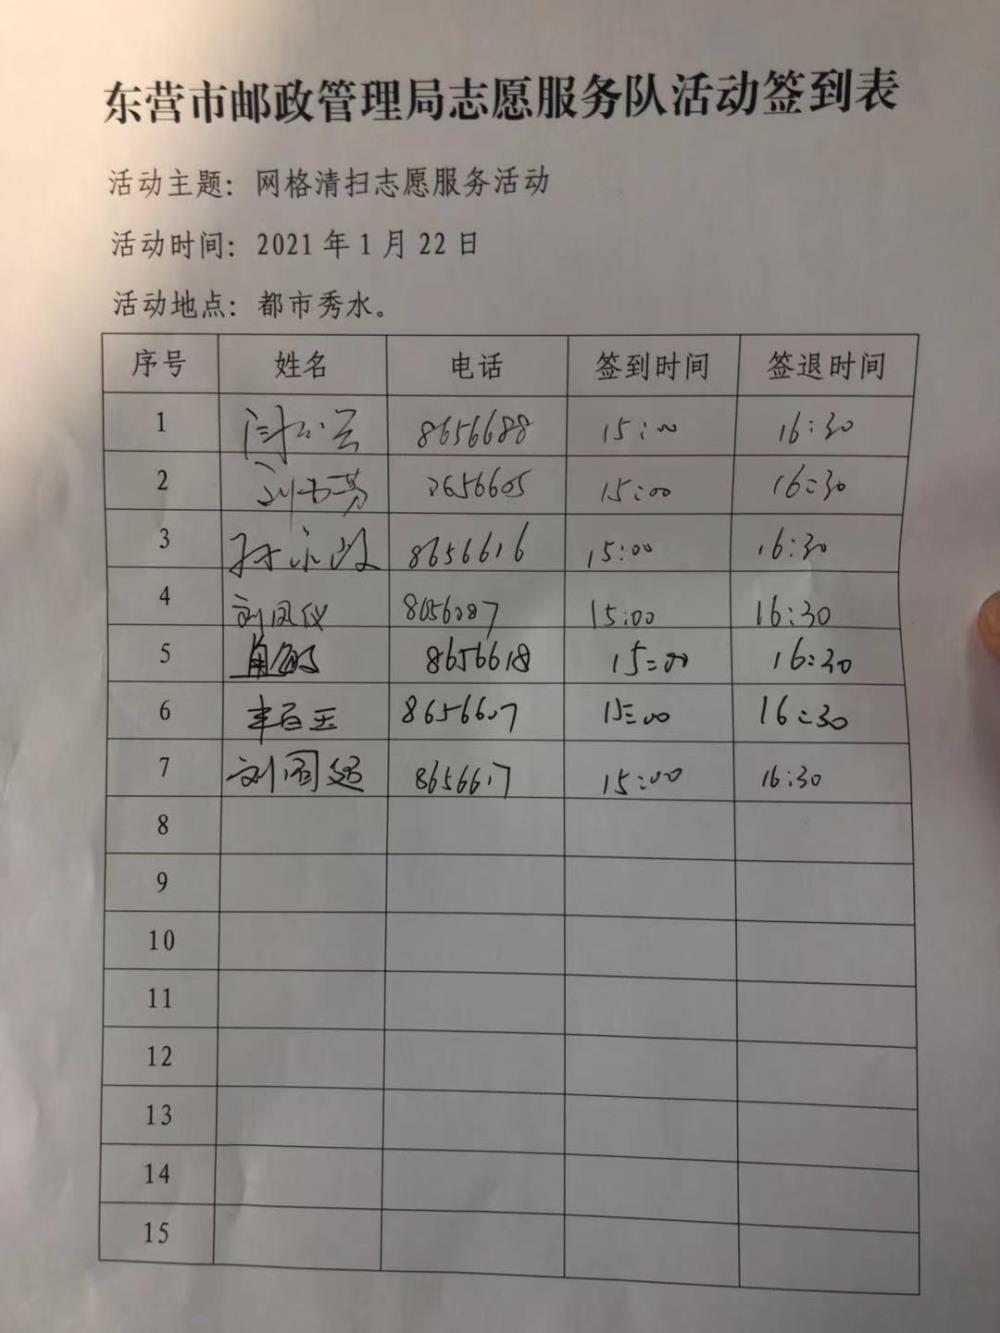 东营市邮政管理局志愿服务队活动签到表
活动主题：网格清扫志愿服务活动
活动时间：2021年1月22日
活动地点：都市秀水。
序号 姓名 电话 签到时间 签退时间
1 8656688 15:00 16:30
2 刘书芳 15:00 16:30
3 8656616 15:00 16:30
4 刘凤仪 15:00 16:30
5 8656618 15:00 16:30
6 丰百玉 8656607 15:00 16:30
7 8656617 15:00 16:30
8
9
10
11
12
13
14
15